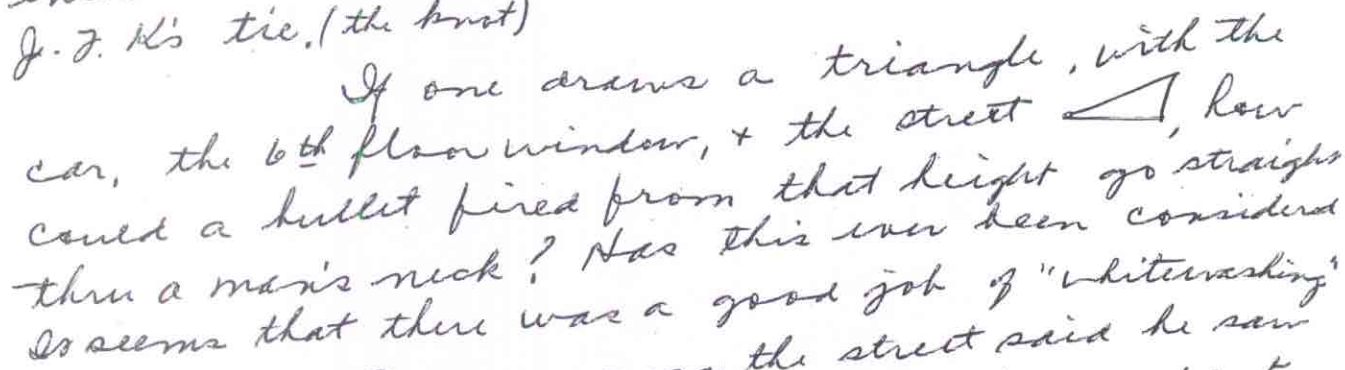 J. F. K's tie. (the knot)
If one draws a triangle, with the
car, the 6th floor window, + the street , how
could a bullet fired from that height go straight
thru a man's neck? Has this ever been considered
It seems that there was a good job of "whitewashing"
the street said he saw